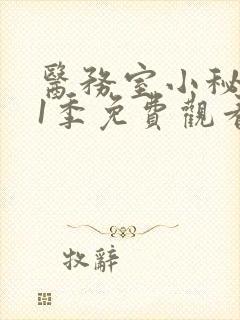 醫務室小秘
1季免費觀看
牧辭